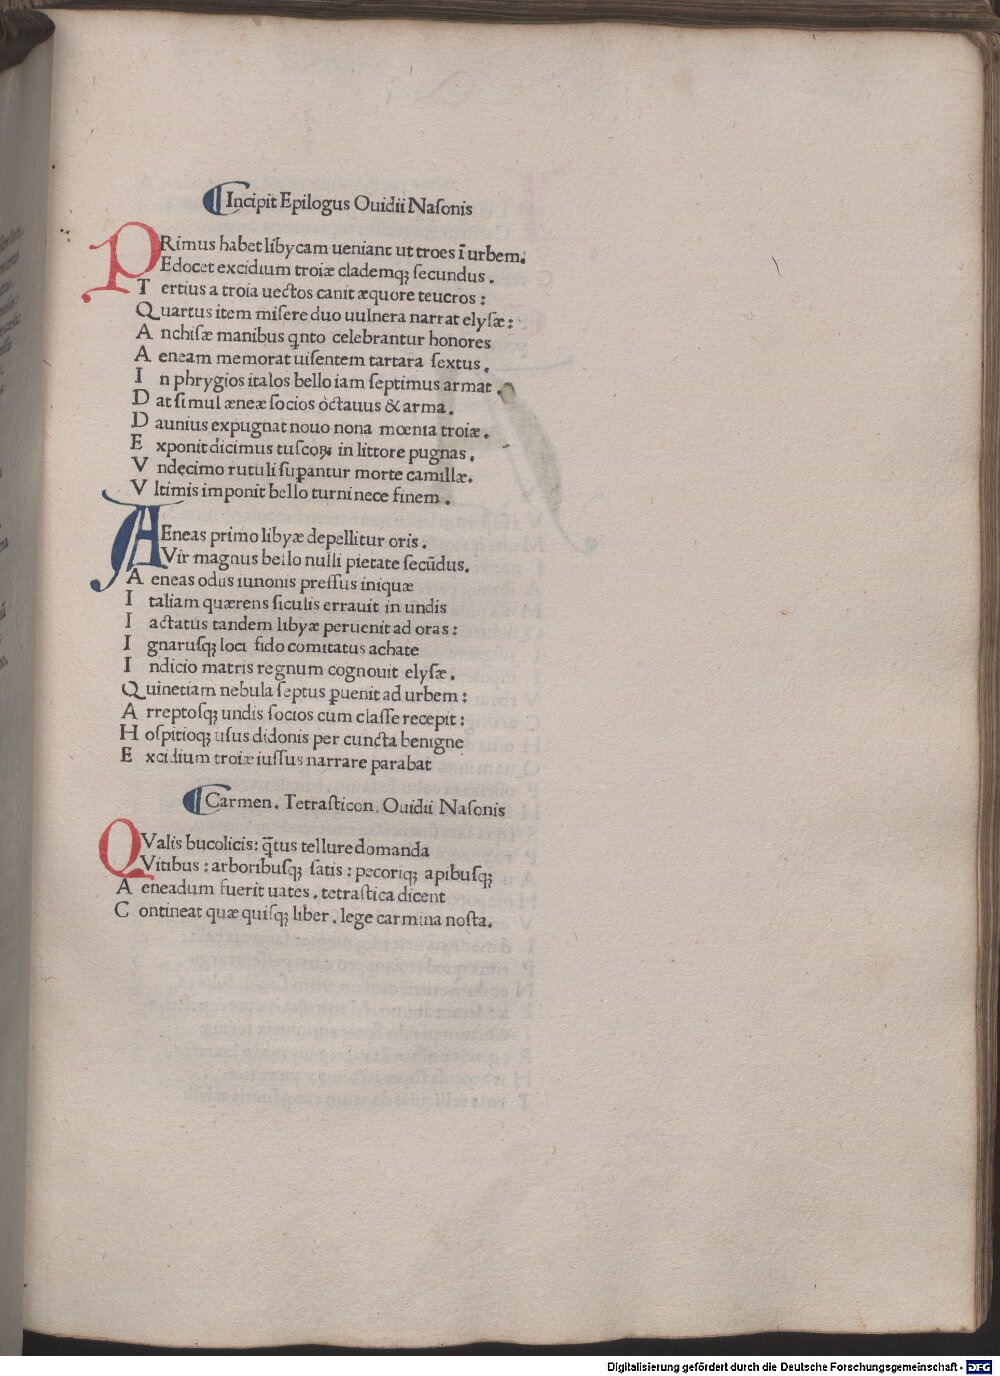 Incipit Epilogus Ouidii Nasonis
PRimus habet libycam ueniant ut troes ī urbem.
Edocet excidium troiæ clademqꝫ secundus.
Tertius a troia uectos canit æquore teucros:
Quartus item misere duo uulnera narrat elysæ:
Anchisæ manibus qnto celebrantur honores
Aeneam memorat uisentem tartara sextus.
In phrygios italos bello iam septimus armat.
Dat simul æneæ socios octauus & arma.
Daunius expugnat nouo nona mœnia troiæ.
Exponit dicimus tuscoꝝ in littore pugnas.
Vndecimo rutuli suꝑantur morte camillæ.
Vltimis imponit bello turni nece finem.
AEneas primo libyæ depellitur oris.
Vir magnus bello nulli pietate secūdus.
Aeneas odiis iunonis pressus iniquæ
Italiam quærens siculis errauit in undis
Iactatus tandem libyæ peruenit ad oras:
Ignarusqꝫ loci fido comitatus achate
Indicio matris regnum cognouit elysæ.
Quinetiam nebula septus ꝑuenit ad urbem:
Arreptosqꝫ undis socios cum classe recepit:
Hospitioqꝫ usus didonis per cuncta benigne
Excidium troiæ iussus narrare parabat
Carmen. Tetrasticon. Ouidii Nasonis
QValis bucolicis: q̄tus tellure domanda
Vitibus: arboribusqꝫ satis: pecoriqꝫ apibusqꝫ
Aeneadum fuerit uates. tetrastica dicent
Contineat quæ quisqꝫ liber. lege carmina nosta.
Digitalisierung gefördert durch die Deutsche Forschungsgemeinschaft - DFG